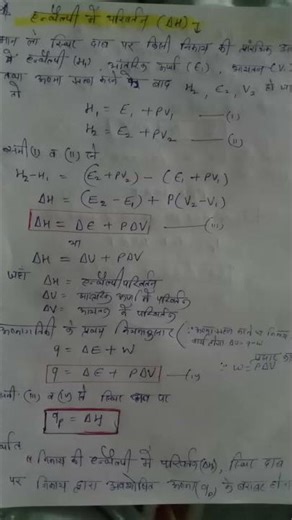 एन्थैल्पी में परिवर्तन (ΔH)
मान लो स्थिर दाब पर किसी निकाय की प्रारंभिक
में एन्थैल्पी (H₁), आंतरिक ऊर्जा (E₁), आयतन (V₁)
तथा ऊष्मा के बाद H₂, E₂, V₂ हो
तो
H₁ = E₁ + PV₁ —(i)
H₂ = E₂ + PV₂ —(ii)
समी (i) व (ii) से
H₂-H₁ = (E₂ + PV₂) - (E₁ + PV₁)
ΔH = (E₂ - E₁) + P(V₂-V₁)
ΔH = ΔE + PΔV —(iii)
या
ΔH = ΔU + PΔV
जहाँ
ΔH = एन्थैल्पी परिवर्तन
ΔU = आन्तरिक ऊर्जा में परिवर्तन
ΔV = आयतन में परिवर्तन
के प्रथम नियमानुसार
q = ΔE + W
q = ΔE + PΔV —(iv)
∵ W = PΔV
समी (iii) व (iv) से स्थिर दाब पर
qₚ = ΔH
अर्थात
निकाय की एन्थैल्पी में परिवर्तन (ΔH), स्थिर दाब
पर निकाय द्वारा अवशोषित ऊष्मा (qₚ) के बराबर